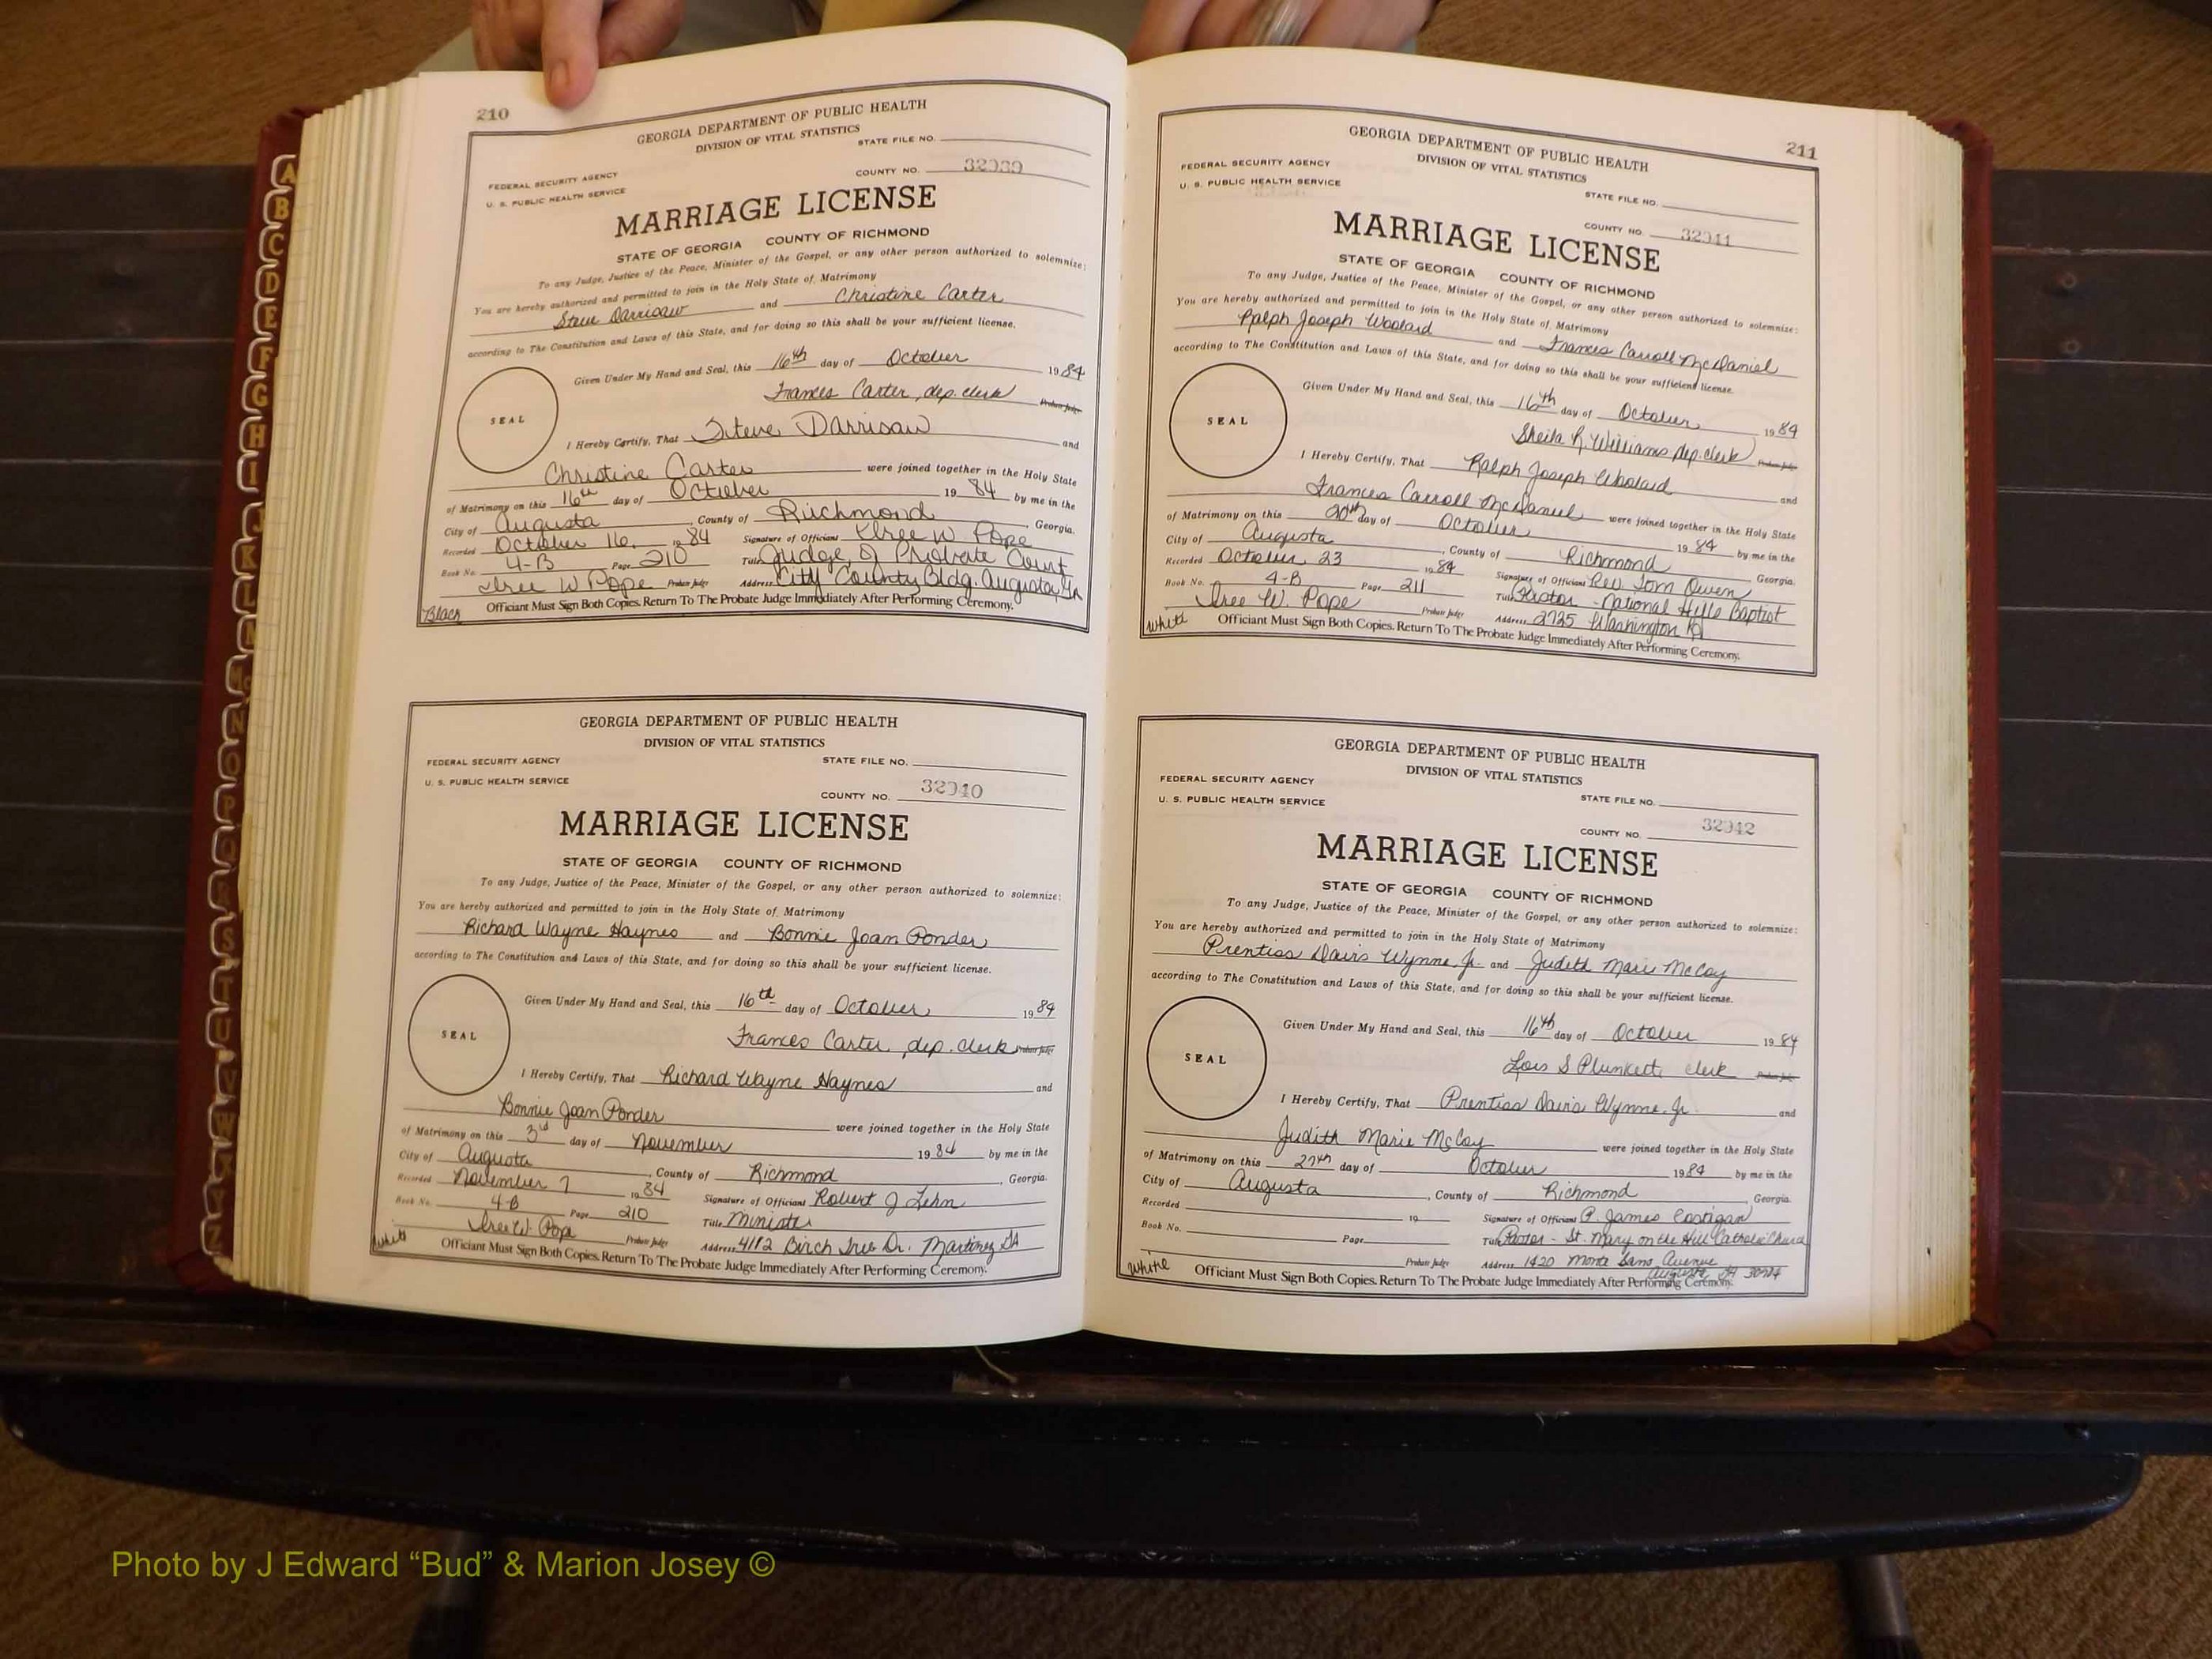 210
GEORGIA DEPARTMENT OF PUBLIC HEALTH
DIVISION OF VITAL STATISTICS
STATE FILE NO.
FEDERAL SECURITY AGENCY
U. S. PUBLIC HEALTH SERVICE
COUNTY NO. 32939
MARRIAGE LICENSE
STATE OF GEORGIA COUNTY OF RICHMOND
To any Judge, Justice of the Peace, Minister of the Gospel, or any other person authorized to solemnize:
You are hereby authorized and permitted to join in the Holy State of Matrimony
Steve Darrisaw and Christine Carter
according to The Constitution and Laws of this State, and for doing so this shall be your sufficient license.
Given Under My Hand and Seal, this 16th day of October 1984
SEAL
Frances Carter, dep. clerk Probate Judge
I Hereby Certify, That Steve Darrisaw and
Christine Carter were joined together in the Holy State
of Matrimony on this 16th day of October 19 84 by me in the
City of Augusta, County of Richmond, Georgia.
Recorded October 16, 19 84 Signature of Officiant Isree W Pope
Book No. 4-B Page 210 Title Judge of Probate Court
Isree W Pope Probate Judge Address City County Bldg. Augusta, GA
Black Officiant Must Sign Both Copies. Return To The Probate Judge Immediately After Performing Ceremony.
GEORGIA DEPARTMENT OF PUBLIC HEALTH
DIVISION OF VITAL STATISTICS
FEDERAL SECURITY AGENCY STATE FILE NO.
U. S. PUBLIC HEALTH SERVICE
COUNTY NO. 32940
MARRIAGE LICENSE
STATE OF GEORGIA COUNTY OF RICHMOND
To any Judge, Justice of the Peace, Minister of the Gospel, or any other person authorized to solemnize:
You are hereby authorized and permitted to join in the Holy State of Matrimony
Richard Wayne Haynes and Bonnie Joan Ponder
according to The Constitution and Laws of this State, and for doing so this shall be your sufficient license.
Given Under My Hand and Seal, this 16th day of October 1984
SEAL
Frances Carter, dep. clerk Probate Judge
I Hereby Certify, That Richard Wayne Haynes and
Bonnie Joan Ponder were joined together in the Holy State
of Matrimony on this 3rd day of November 19 84 by me in the
City of Augusta, County of Richmond, Georgia.
Recorded November 7 19 84 Signature of Officiant Robert J
Book No. 4-B Page 210 Title Minister
Isree W. Pope Probate Judge Address 4112 Birch Tree Dr. Martinez GA
White Officiant Must Sign Both Copies. Return To The Probate Judge Immediately After Performing Ceremony.
211
GEORGIA DEPARTMENT OF PUBLIC HEALTH
DIVISION OF VITAL STATISTICS
FEDERAL SECURITY AGENCY
U. S. PUBLIC HEALTH SERVICE
STATE FILE NO.
COUNTY NO. 32941
MARRIAGE LICENSE
STATE OF GEORGIA COUNTY OF RICHMOND
To any Judge, Justice of the Peace, Minister of the Gospel, or any other person authorized to solemnize:
You are hereby authorized and permitted to join in the Holy State of Matrimony
Ralph Joseph Woolard and Frances Carroll McDaniel
according to The Constitution and Laws of this State, and for doing so this shall be your sufficient license.
Given Under My Hand and Seal, this 16th day of October 1984
SEAL
Sheila R. Williams dep. clerk Probate Judge
I Hereby Certify, That Ralph Joseph Woolard and
Frances Carroll McDaniel were joined together in the Holy State
of Matrimony on this 20th day of October 19 84 by me in the
City of Augusta, County of Richmond Georgia.
Recorded October 23 19 84 Signature of Officiant Rev. Tom Owen
Book No. 4-B Page 211 Title Pastor - National Hills Baptist
Isree W. Pope Probate Judge Address 2725 Washington Rd
White Officiant Must Sign Both Copies. Return To The Probate Judge Immediately After Performing Ceremony.
GEORGIA DEPARTMENT OF PUBLIC HEALTH
DIVISION OF VITAL STATISTICS
FEDERAL SECURITY AGENCY
U. S. PUBLIC HEALTH SERVICE
STATE FILE NO.
COUNTY NO. 32942
MARRIAGE LICENSE
STATE OF GEORGIA COUNTY OF RICHMOND
To any Judge, Justice of the Peace, Minister of the Gospel, or any other person authorized to solemnize:
You are hereby authorized and permitted to join in the Holy State of Matrimony
Prentiss Davis Wynne, Jr. and Judith Marie McCoy
according to The Constitution and Laws of this State, and for doing so this shall be your sufficient license.
Given Under My Hand and Seal, this 16th day of October 1984
SEAL
Lois S Plunkett, clerk Probate Judge
I Hereby Certify, That Prentiss Davis Wynne, Jr. and
Judith Marie McCoy were joined together in the Holy State
of Matrimony on this 27th day of October 1984 by me in the
City of Augusta, County of Richmond, Georgia.
Recorded 19 Signature of Officiant P. James Costigan
Book No. Page Title Pastor - St. Mary on the Hill Catholic Church
Probate Judge Address 1420 Monte Sano Avenue
Augusta GA 30904
White Officiant Must Sign Both Copies. Return To The Probate Judge Immediately After Performing Ceremony.
A
B
C
D
E
F
G
H
I
J
K
L
M
Mc
N
O
P
Q
R
S
T
U
V
W
X
Y
Z
Photo by J Edward “Bud” & Marion Josey ©